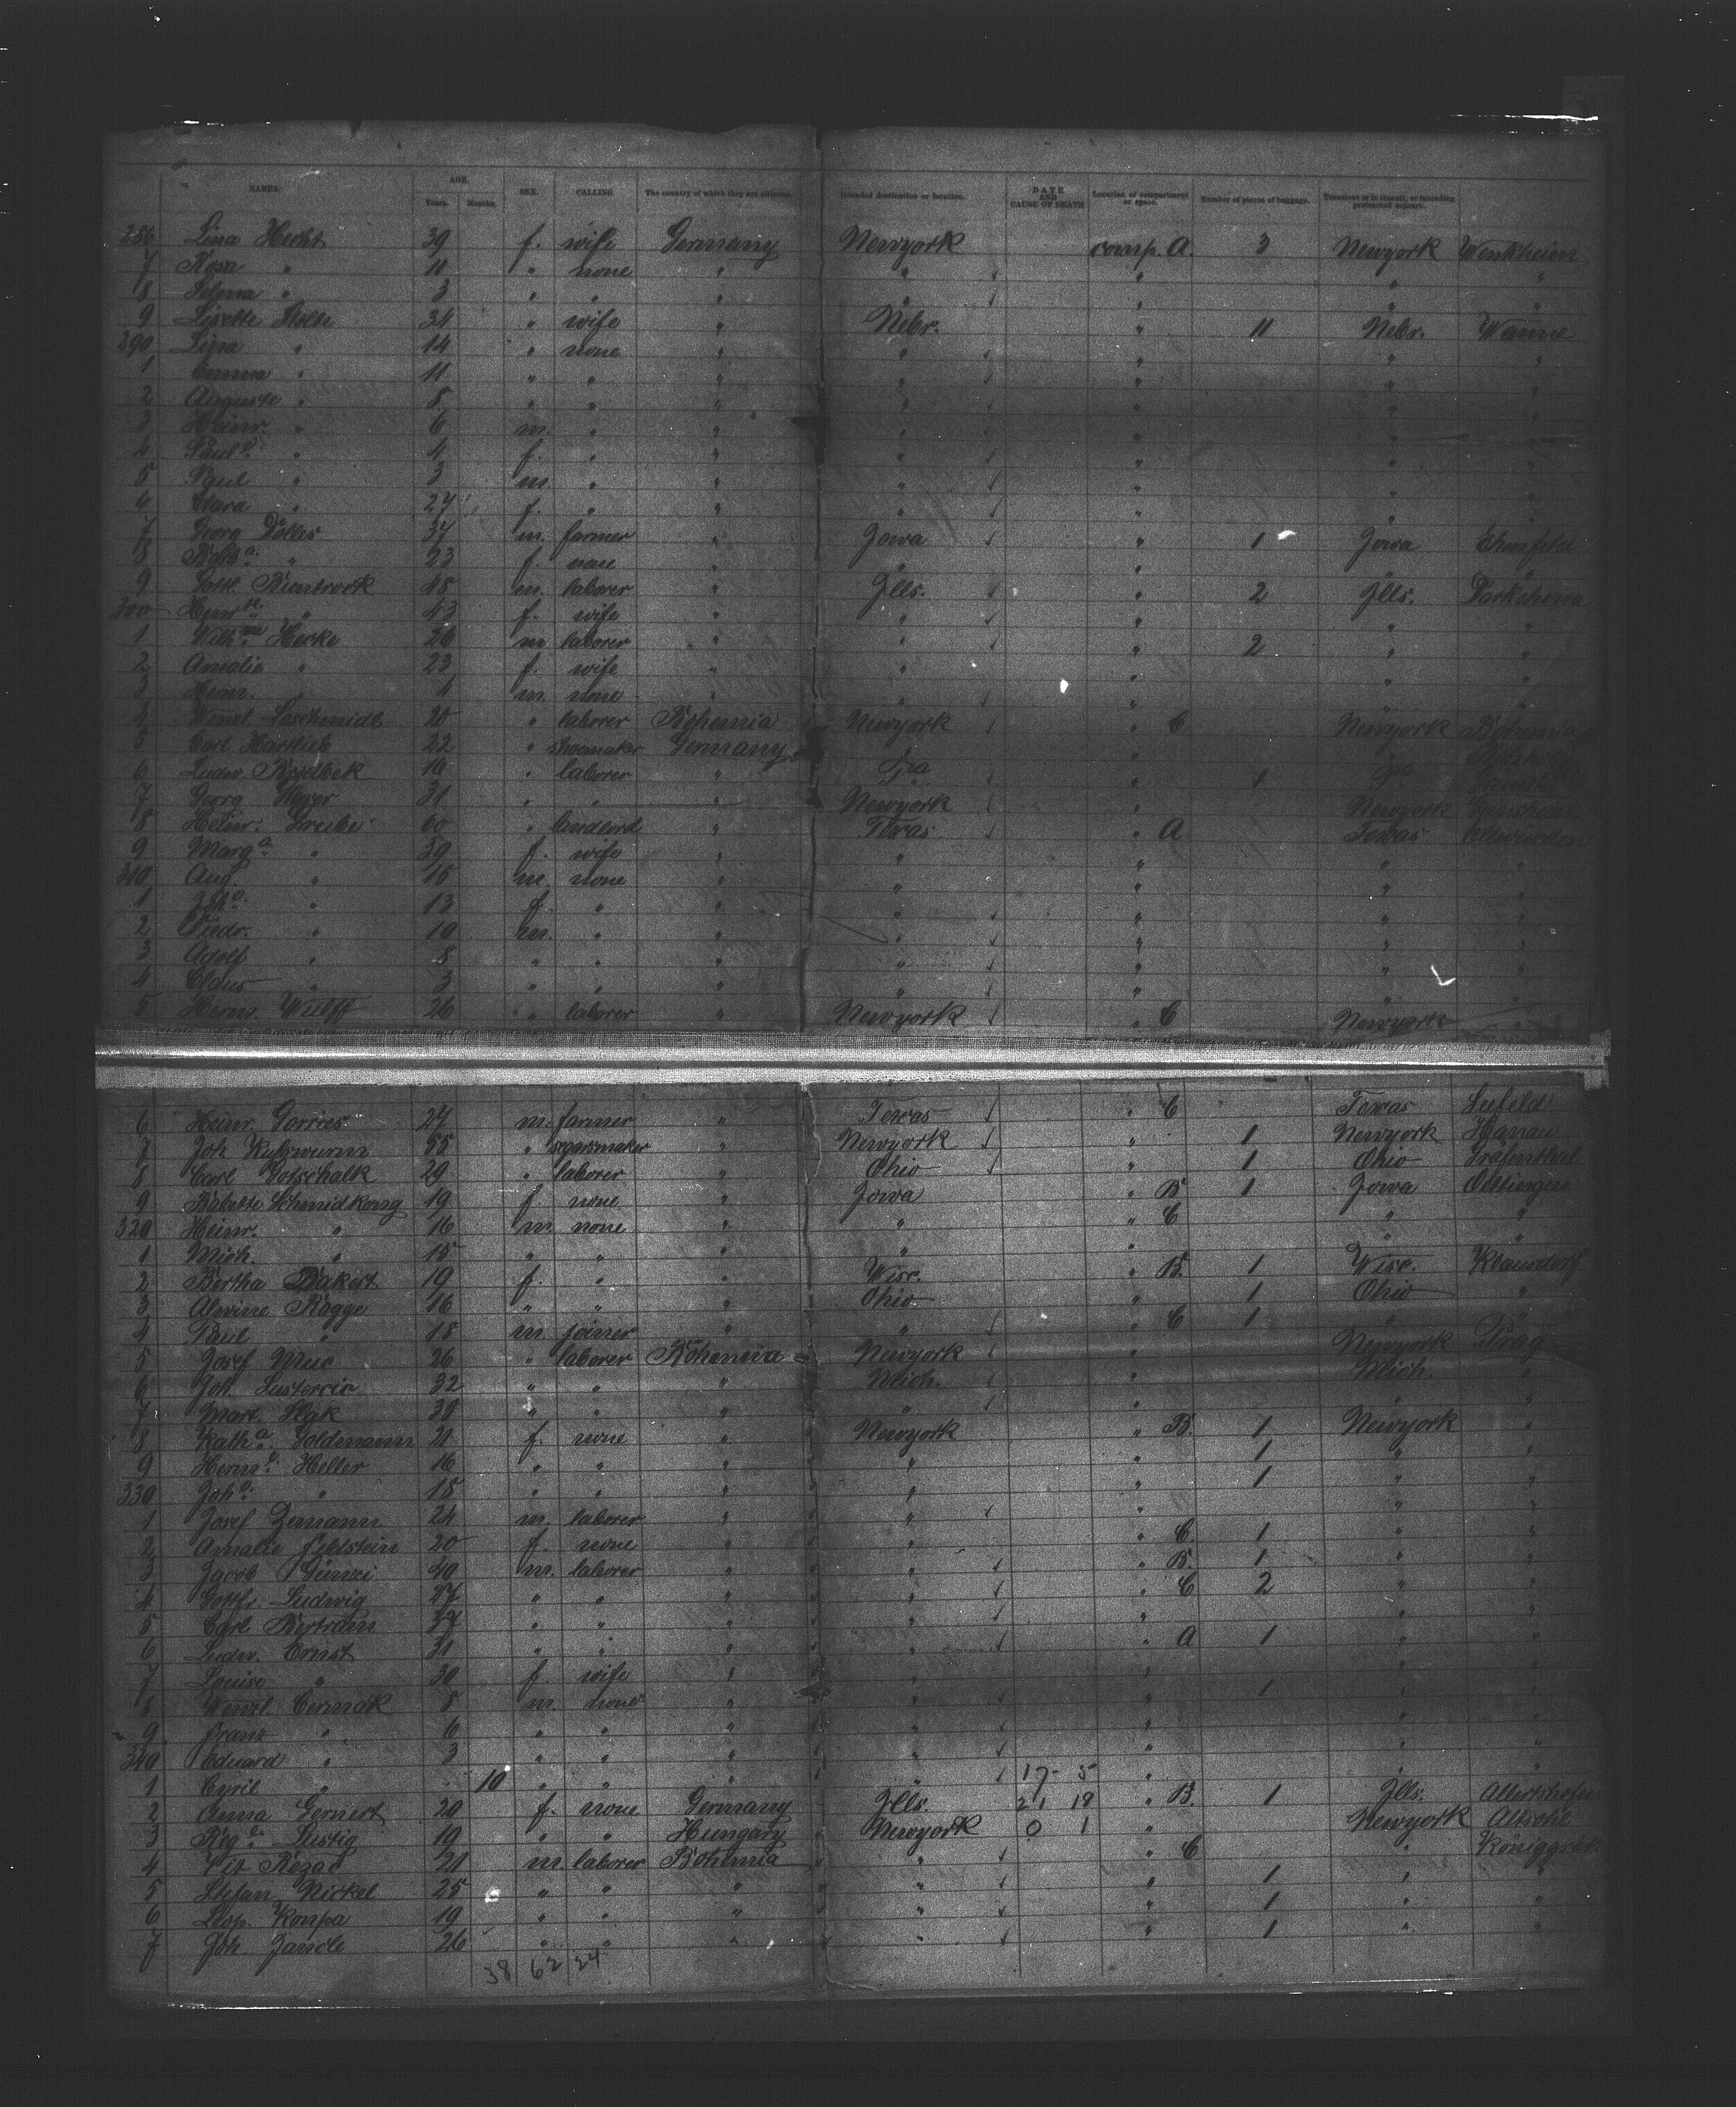 NAMES. AGE. Years. Months. SEX. CALLING. The country of which they are citizens. Intended destination or location. DATE AND CAUSE OF DEATH Location of compartment or space. Number of pieces of baggage. Transient or in transit, or intending protracted sojourn.
286 Lina Hecht 39 f. wife Germany Newyork comp. A. 3 Newyork Wenkheim
7 Rosa " 11 " none " " " " "
8 Selma " 3 " " " " " " "
9 Lisette Stolte 34 " wife " Nebr. " 11 Nebr. Wanne
290 Lina " 14 " none " " " " "
1 Emma " 11 " " " " " " "
2 Auguste " 8 " " " " " " "
3 Heinr. " 6 m. " " " " " "
4 Paule " 4 f. " " " " " "
5 Paul " 3 m. " " " " " "
6 Clara " 27 f. " " " " " "
7 Georg Döller 37 m. farmer " Jowa " 1 Jowa
8 " 23 f. none " " " " "
9 Gottl. Bientrock 48 m. laborer " Jlls. " 2 Jlls.
300 Henrtte. " 43 f. wife " " " " "
1 Wilhm Hecke 26 m laborer " " " 2 " "
2 Amalie " 23 f. wife " " " " "
3 Heinr. " 4 m. none " " " " "
4 Wenzl Laschmidt 20 " laborer Bohemia Newyork " C Newyork Bohemia
5 Carl Hartlieb 22 " shoemaker Germany
6 Ludw. Bisselbek 16 " laborer " 1
7 Georg Heyer 31 " " " Newyork Newyork
8 Heinr. Grube 60 " Landlord " Texas " A Texas
9 Marga " 39 f. wife " " " " "
310 Aug. " 15 m. none " " " " "
1 " 13 f. " " " " " "
2 Friedr. " 10 m. " " " " " "
3 Adolf " 8 " " " " " " "
4 Claus " 3 " " " " " " "
5 Herm. Wulff 26 " laborer " Newyork " C Newyork "
6 Heinr. Gorries 27 m. farmer " Texas " C Texas Seefeld
7 Joh. Kutzwurm 58 " segarsmaker " Newyork " 1 Newyork Hanau
8 Carl Gotschalk 29 " laborer " Ohio " 1 Ohio Gräfenthal
9 Babette Schmidkonz 19 f. none " Jowa " B 1 Jowa Ottingen
320 Heinr. " 16 m. none " " " C " "
1 Mich. " 15 " " " " " " "
2 Bertha Bakist 19 f. " " Wisc. " B. 1 Wisc. Klausdorf
3 Alwine Ragge 16 " " " Ohio " 1 Ohio "
4 Paul " 18 m. joiner " " " C 1
5 Josef Muc 26 " laborer Bohemia Newyork " Newyork Prag
6 Joh. Susterric 32 " " " Mich. " Mich. "
7 Mart. Slak 30 " " " " " " "
8 Katha. Goldmann 21 f. none " Newyork " B. 1 Newyork "
9 Hermi. Heller 16 " " " " " 1 " "
330 Joha. " 18 " " " " " 1 " "
1 Josef Zemann 24 m. laborer " " " " "
2 Amalie Feldstein 20 f. none " " " C. 1 " "
3 Jacob Günzi 49 m. laborer " " " B. 1 " "
4 Gottfr. Ludwig 27 " " " " " C 2 " "
5 Carl Bertram 37 " " " " " " "
6 Ludw. Ernst 31 " " " " " A 1 " "
7 Louise " 30 f. wife " " " " "
8 Wenzl. Cermak 8 m. none " " " 1 " "
9 Franz " 6 " " " " " " "
340 Eduard " 3 " " " " " " "
1 Cyril " 10 " " " " 17 - 5 " " "
2 Anna Gernert 20 f. none Germany Jlls. 21 19 " B. 1 Jlls.
3 Regi. Lustig 19 " " Hungary Newyork 0 1 " Newyork Altsohl
4 Vit Rezac 21 m. laborer Bohemia " " C " Königgrätz
5 Stefan Nickel 25 " " " " " 1 " "
6 Leop. Konpa 19 " " " " " 1 " "
7 Joh. Jandle 26 " " " " " 1 " "
38 62 24